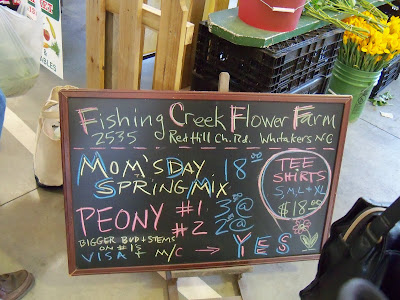 & ABLES
Fishing Creek Flower Farm
2535 Red Hill Ch. Rd. Whitakers NC
MOM'S DAY 18 00
SPRING MIX
TEE
SHIRTS
S, M, L + XL
$18.00
PEONY #1 3@
#2 2@
BIGGER BUD + STEMS
ON #1'S
VISA + M/C → YES